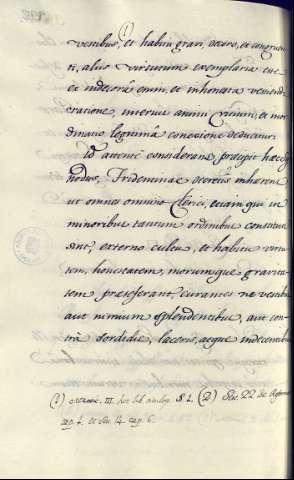 vestibus, et habitu gravi, decoro, et congruen
ti, aliis virtutum exemplaria
et indecora omni, et inhonesta
ratione, interius animi vitium, et inor
dinatio legitima conexione deducatur.
Id attente considerans praecipit haec Sy
nodus, Tridentinae decretis inherens
ut omnes omnino Clerici, etiam qui in
minoribus tantum ordinibus constituti
sunt, externo cultu, et habitu virtu
tem, honestatem, morumque gravita
tem praeseferant, curantes ne vestibus
aut nimium splendentibus, aut con
tra sordidis, laceris, aeque indecentibus
(1) III. (2) Ses. 22 de Reform
cap. 1. et ses. 14 cap. 6.